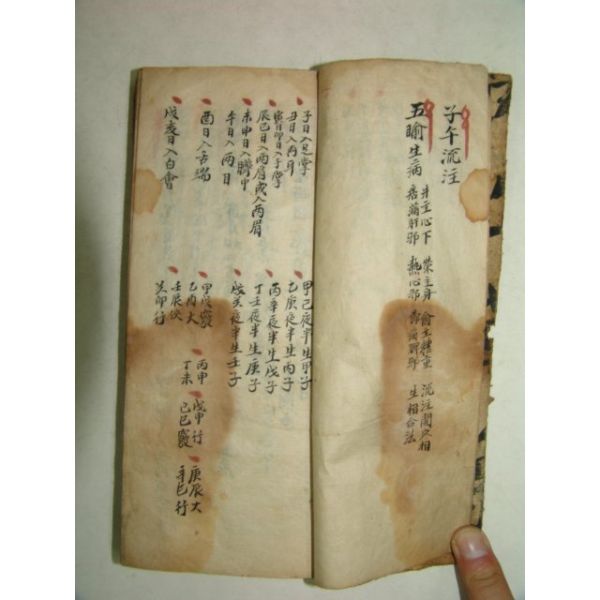 子午流注
五瞈生病
井主心下 滎主身 俞主體重 流注開穴相
痞滿肝邪 熱心邪 節痛脾邪 生相合法
子日入足掌
丑日入兩耳
寅卯日入手掌
辰巳日入兩肩或入兩眉
未申日入臍中
午日入兩目
酉日入舌端
戌亥日入百會
甲己夜半生甲子
乙庚夜半生丙子
丙辛夜半生戊子
丁壬夜半生庚子
戊癸夜半生壬子
甲戌 丙申 戊申行 庚辰大
乙酉大 丁未 己巳 辛巳行
壬辰
癸卯行